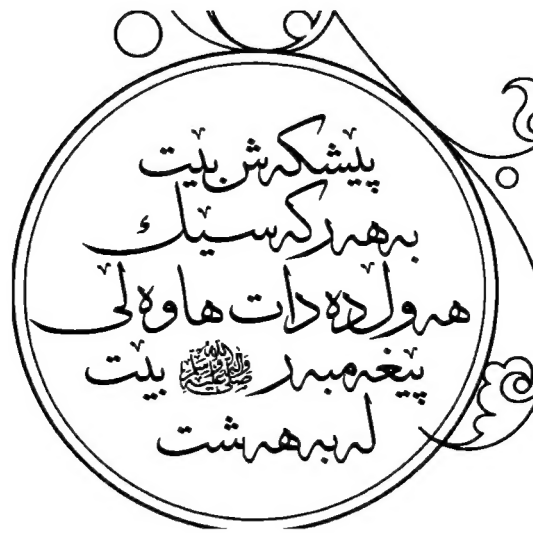 پێشکەش بێت
بەهەرکەسێک
هەوڵدەدات هاوەڵی
پێغەمبەر ﷺ بێت
لەبەهەشت